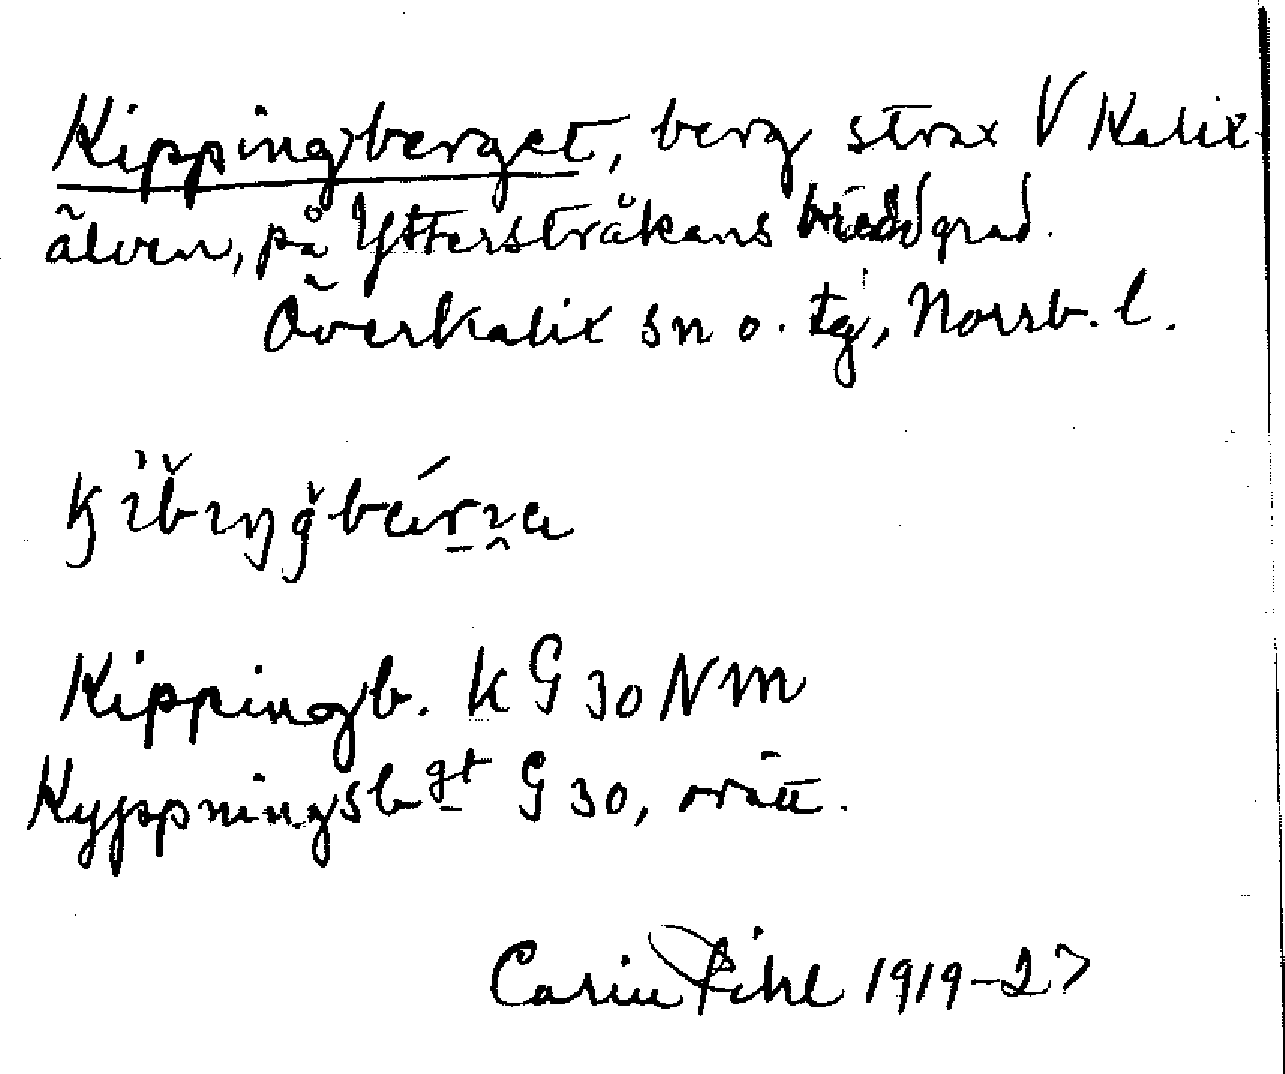 Kippingberget, berg strax V Kalix-
älven, på Ytterstråkans breddgrad.
Överkalix sn o. tg, Norrb. l.
Kippingb. KG 30 NM
Kyppningsbgt G 30, orätt.
Carin Pihl 1919-27